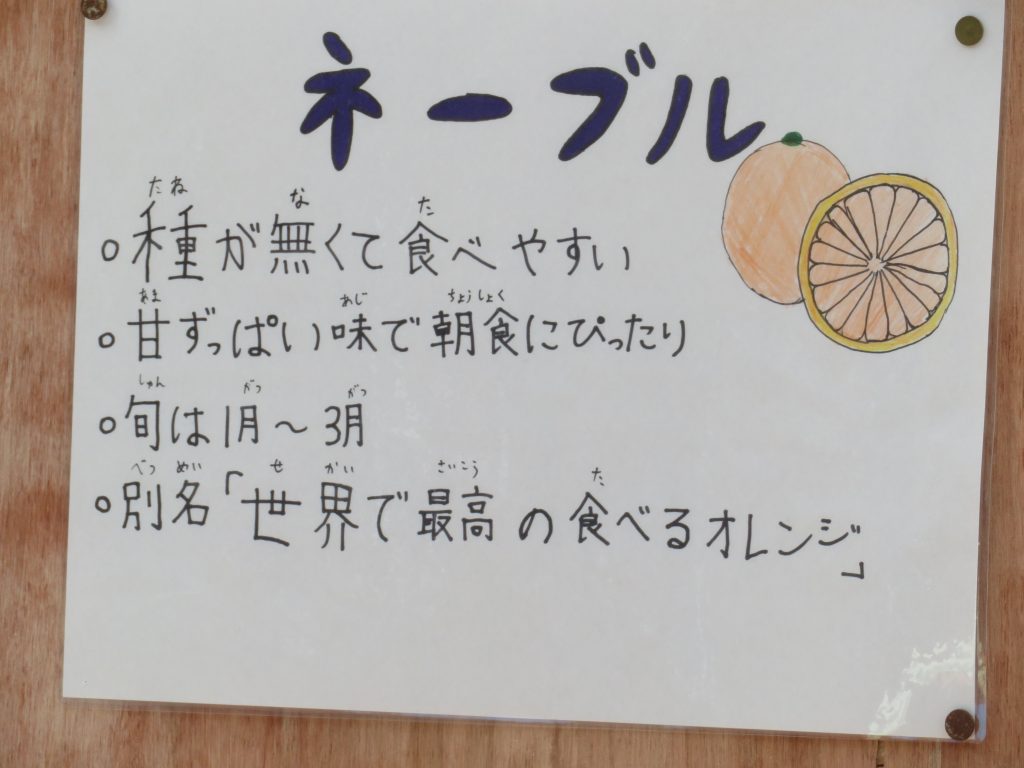 ネーブル
たね な た
○種が無くて食べやすい
あま あじ ちょうしょく
○甘ずっぱい味で朝食にぴったり
しゅん がつ がつ
○旬は1月～3月
べつ めい せ かい さいこう た
○別名「世界で最高の食べるオレンジ」